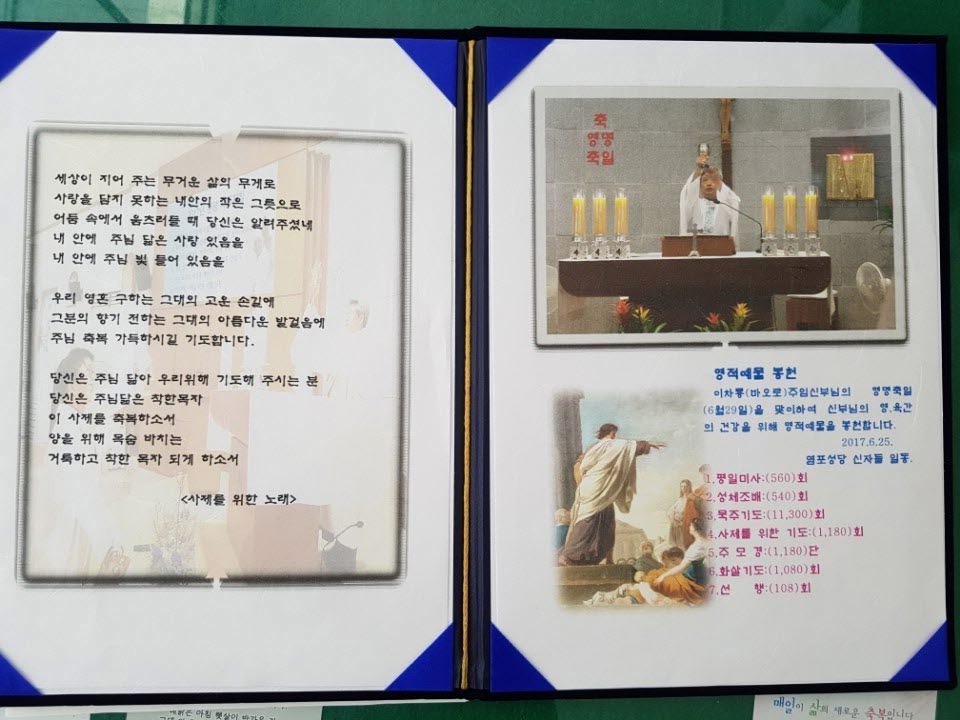 세상이 지어 주는 무거운 삶의 무게로
사랑을 담지 못하는 내안의 작은 그릇으로
어둠 속에서 움츠러들 때 당신은 알려주셨네
내 안에 주님 닮은 사랑 있음을
내 안에 주님 빛 들어 있음을
우리 영혼 구하는 그대의 고운 손길에
그분의 향기 전하는 그대의 아름다운 발걸음에
주님 축복 가득하시길 기도합니다.
당신은 주님 닮아 우리위해 기도해 주시는 분
당신은 주님닮은 착한목자
이 사제를 축복하소서
양을 위해 목숨 바치는
거룩하고 착한 목자 되게 하소서
<사제를 위한 노래>
축
영명
축일
영적예물 봉헌
이차룡(바오로)주임신부님의 영명축일
(6월29일)을 맞이하여 신부님의 영.육간
의 건강을 위해 영적예물을 봉헌합니다.
2017.6.25.
염포성당 신자들 일동.
1.평일미사:(560)회
2.성체조배:(540)회
3.묵주기도:(11,300)회
4.사제를 위한 기도:(1,180)회
5.주 모 경:(1,180)단
6.화살기도:(1,080)회
7.선 행:(108)회
매일이 삶의 새로운 축복입니다